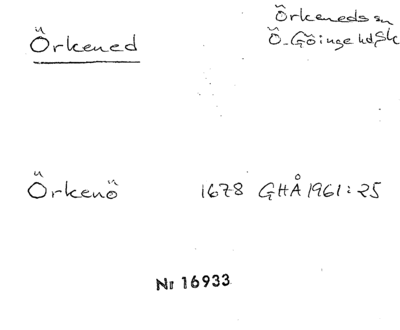 Örkened
Örkeneds sn
Ö. Göinge hd, Sk
Örkenö 1678 GHÅ 1961:25
Nr 16933